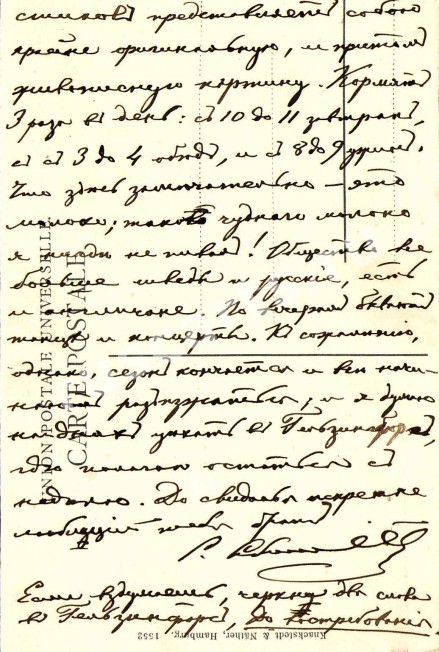 стиковъ представляетъ собою
крайне оригинальную, и притомъ
живописную картину. Кормятъ
3 раза въ день: съ 10 до 11 завтракъ,
съ 3 до 4 обѣдъ, и съ 8 до 9 ужинъ.
Что здѣсь замѣчательно — это
молоко; такого чуднаго молоко
я нигдѣ не пивалъ! Общество все
больше шведы и русскіе, есть
и англичане. По вечерамъ бываютъ
танцы и концерты. Къ сожалѣнію,
однако, сезонъ кончается и всѣ начи-
наютъ разъѣзжаться; и я думаю
на дняхъ уѣхать въ Гельзингфорсъ,
гдѣ полагаю остаться съ
недѣлю. До свиданья искренне
любящій тебя братъ
Если вздумаешь, черкну два слова
въ Гельзингфорсъ, до востребованія.
UNION POSTALE UNIVERSELLE
CARTE POSTALE
Knackstedt & Näther, Hamburg. 1552